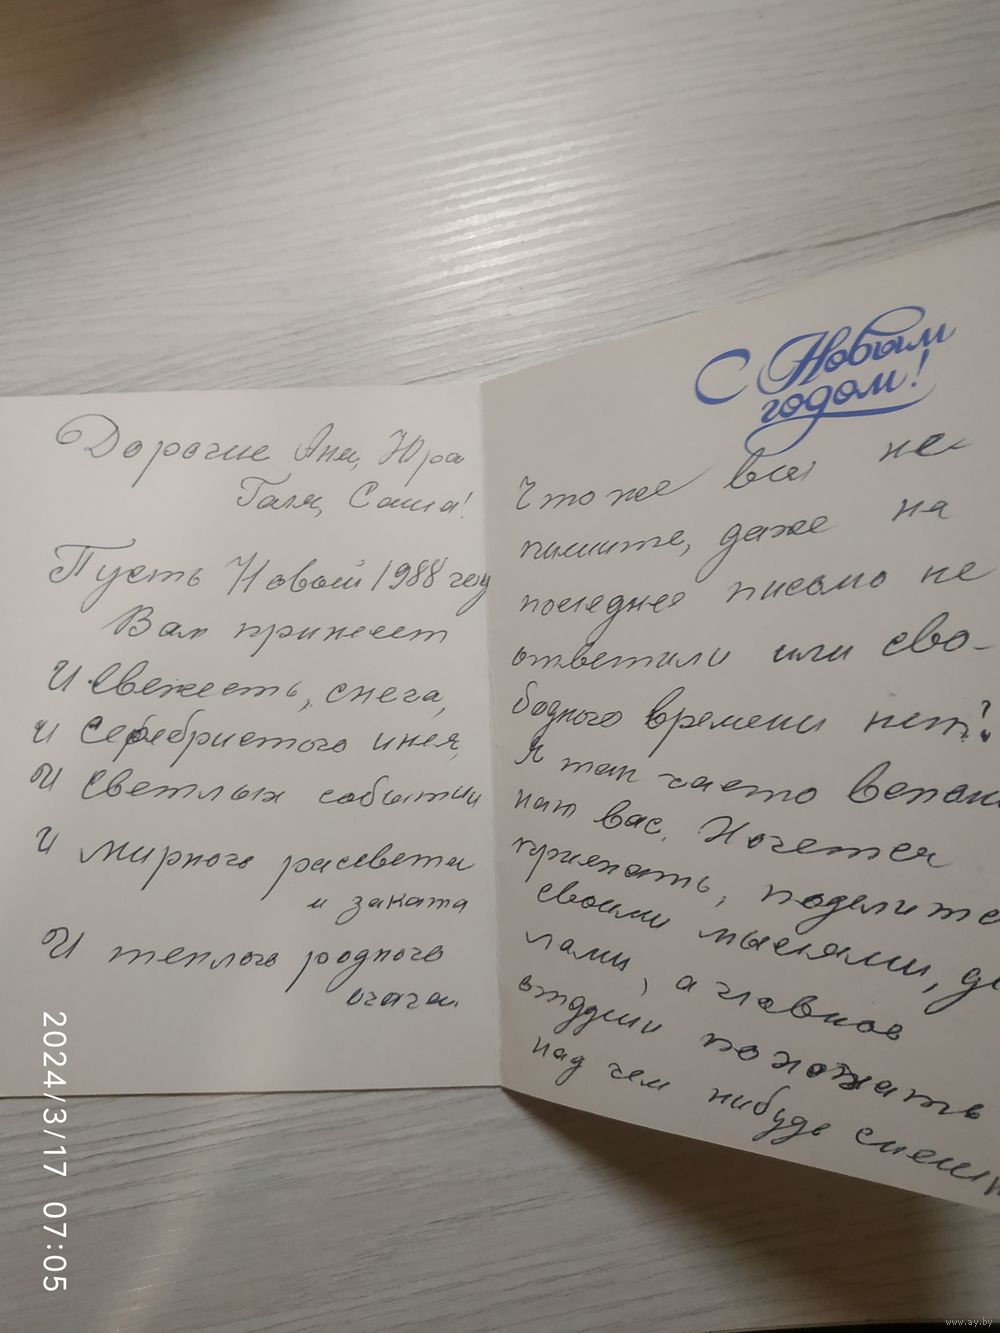 Дорогие Аня, Юра
Галя, Саша!
Пусть Новый 1988 год
Вам принесет
И свежесть, снега,
и серебристого инея,
И светлых событий
И мирного рассвета
и заката
И теплого родного
очага.
С Новым
годом!
Что же вы не
пишите, даже на
последнее письмо не
ответили или сво-
бодного времени нет?
Я так часто вспоми
наю вас. Хочется
приехать, поделится
своими мыслями, де
лами, а главное
отдуши похохатать
над чем нибудь смешн
2024/3/17 07:05
www.ay.by